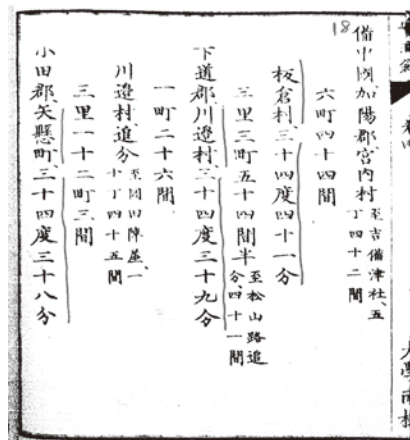 18
備中國加陽郡宮内村 至吉備津社、五丁四十二間
六町四十四間
板倉村、三十四度四十一分
三里三町五十四間半 至松山路追分、四十一間
下道郡川邉村、三十四度三十九分
一町二十六間
川邉村、追分
三里一十二町三間
小田郡、矢懸町、三十四度三十八分